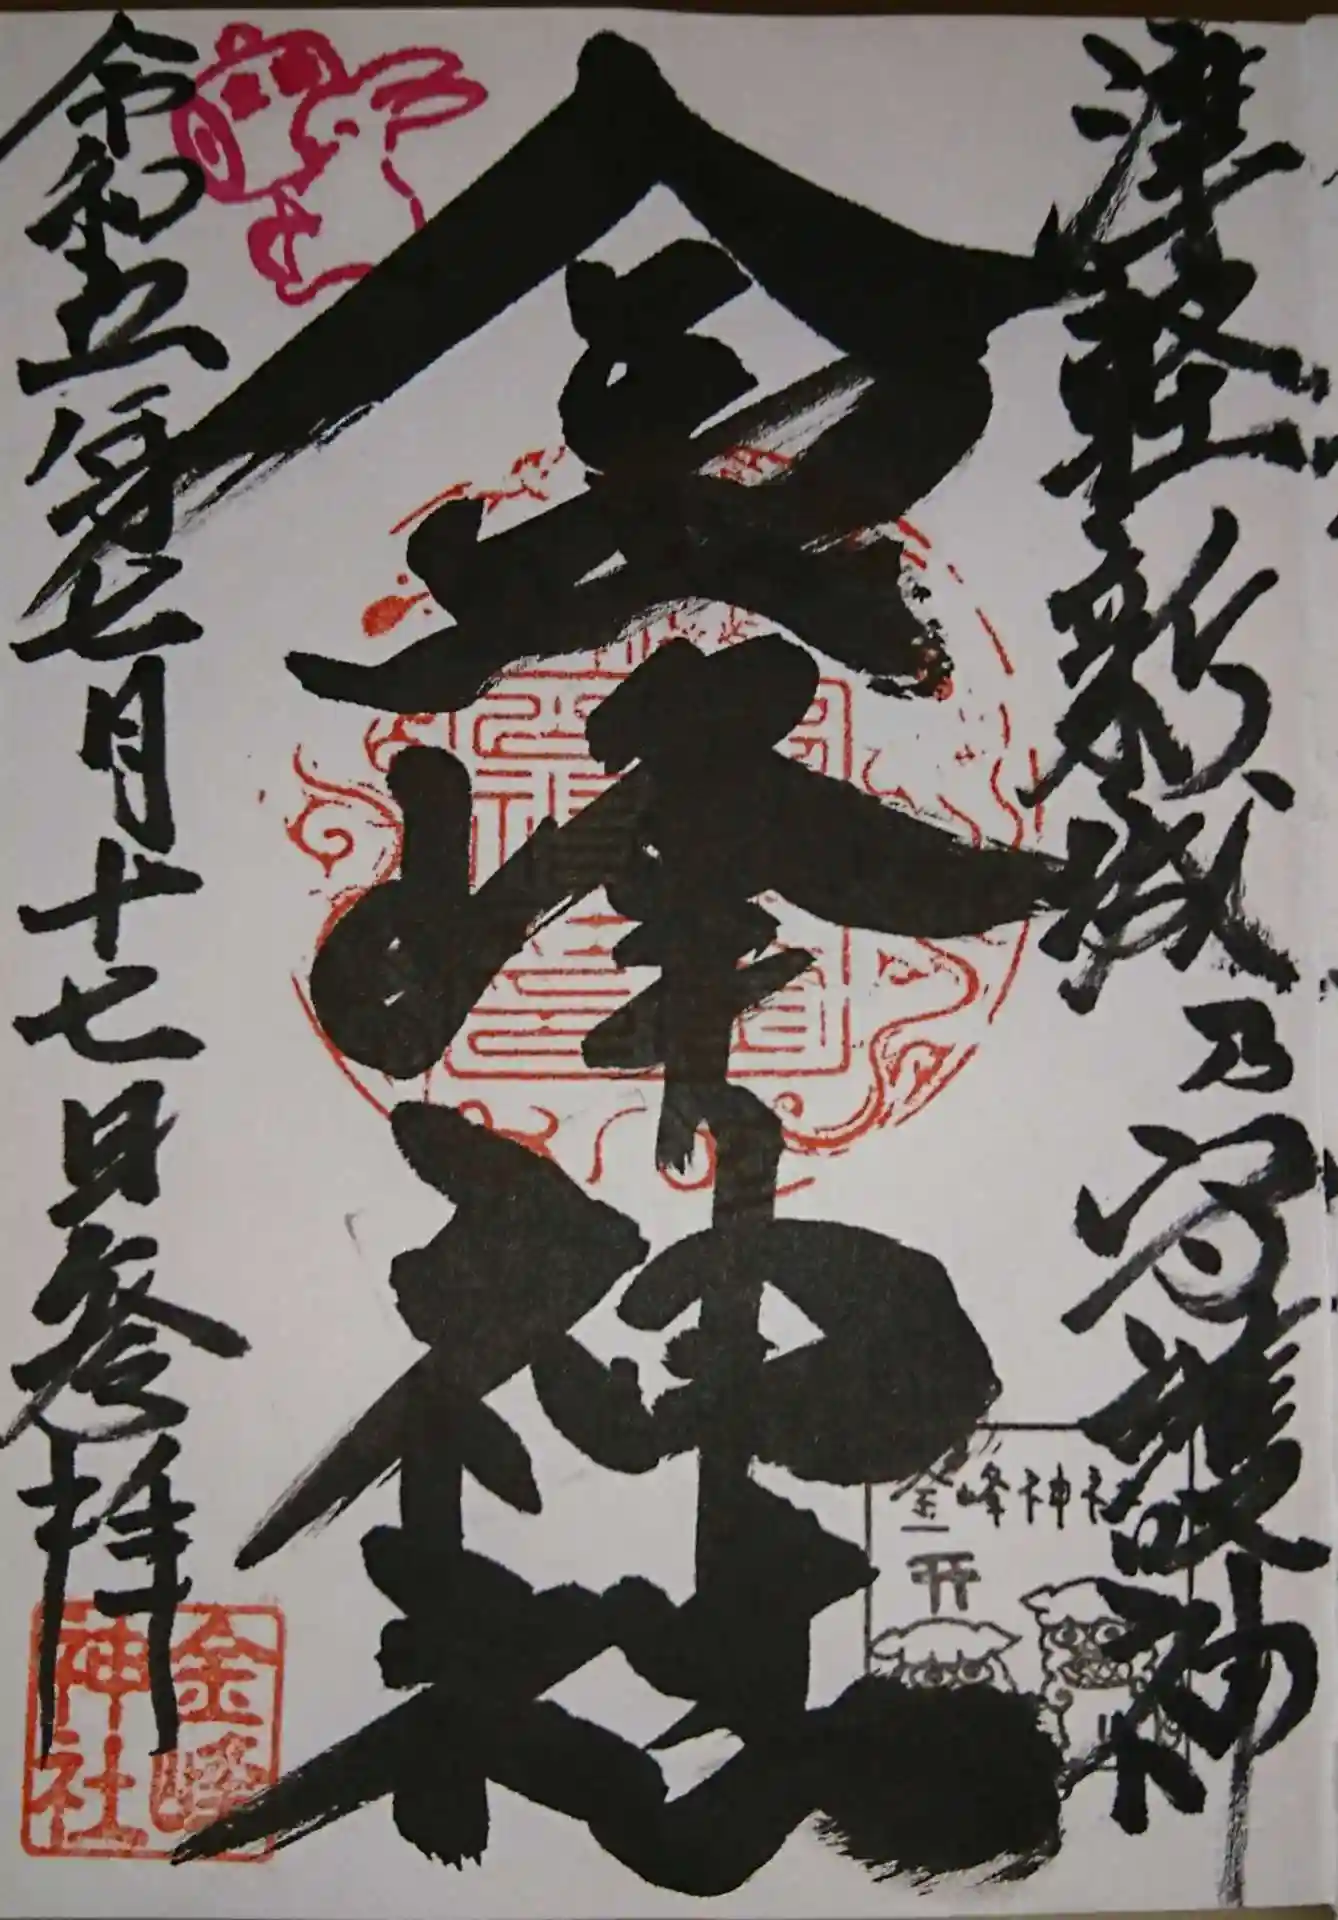 津軽新城乃守護神
金峰神社
令和五年七月十七日参拝
金峰神社
金峰神社